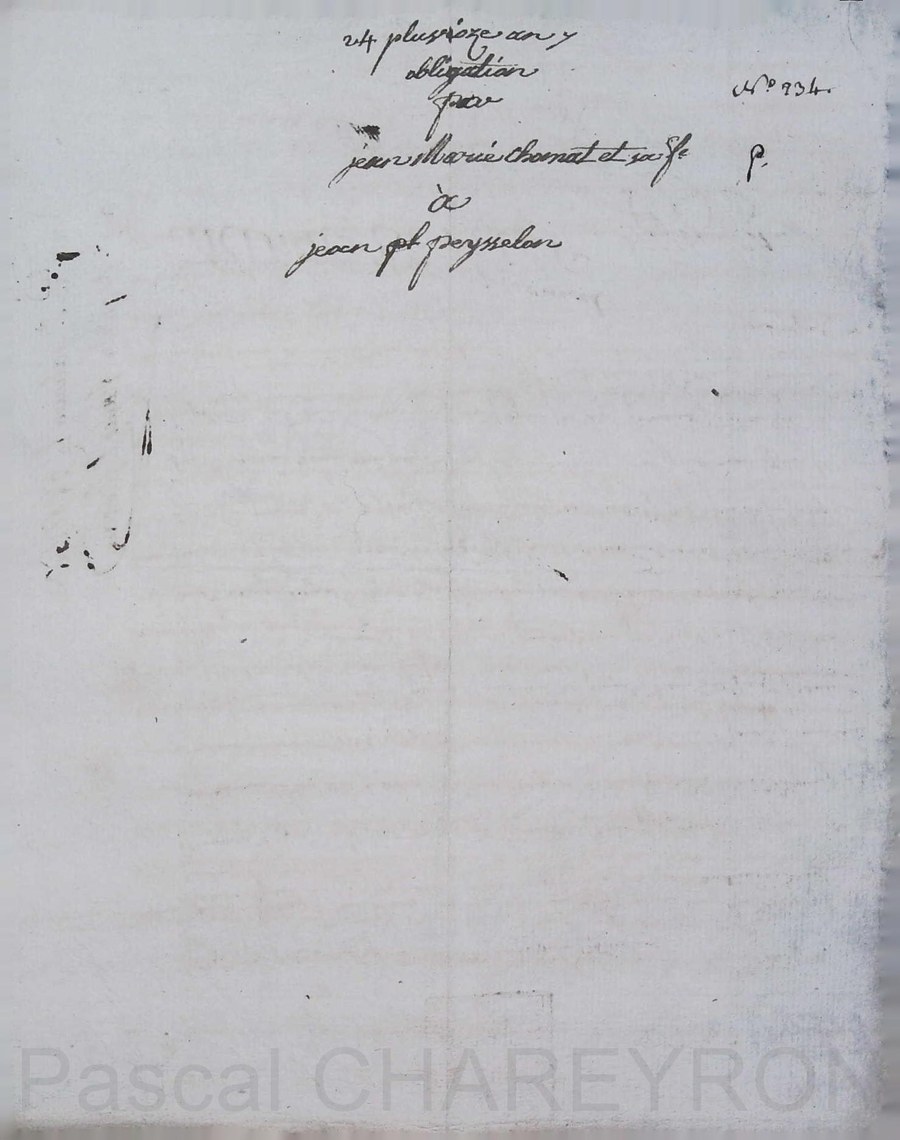 24 pluvioze an 7
obligation
par
N° 234.
jean Marie chomat et sa fe
P.
à
jean pt peysselon
Pascal CHAREYRON